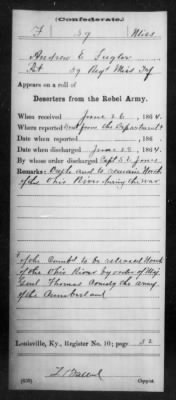 (Confederate.)
F 39 Miss
Andrew E.
Pvt 39 Reg't Miss Inf
Appears on a roll of
Deserters from the Rebel Army.
When received June 26, 1864.
Where reported from the Department
Date when reported , 186 .
Date when discharged June 28, 1864.
By whose order discharged Capt S E Jones
Remarks: Oath and to remain North
of the Ohio River during the war
to be released North
of the Ohio River by order of Maj
Genl Thomas Comdg the army
of the Cumberland
Louisville, Ky., Register No. 10; page 52
(639)
Copyist.